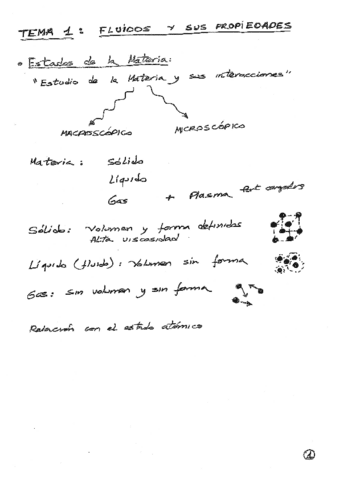 TEMA 1: FLUIDOS Y SUS PROPIEDADES
• Estados de la Materia:
"Estudio de la Materia y sus interacciones"
MACROSCÓPICO
MICROSCÓPICO
Materia: Sólido
Líquido
Gas + Plasma Part cargadas
Sólido: Volumen y forma definidos
Alta viscosidad
Líquido (fluido): Volumen sin forma
Gas: Sin volumen y sin forma
Relación con el estado atómico
1